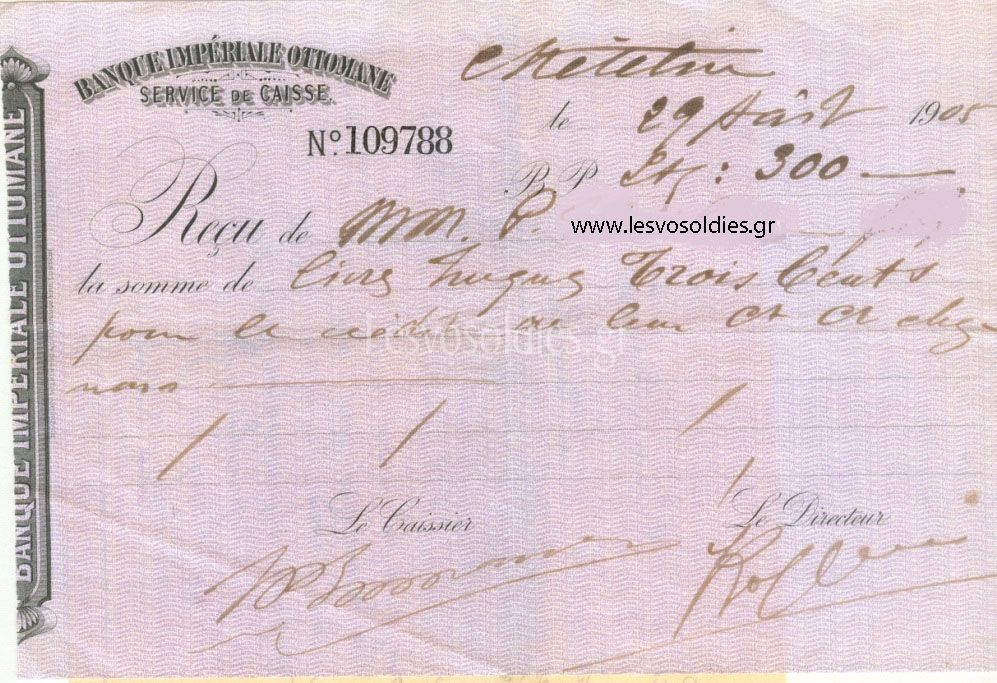 BANQUE IMPÉRIALE OTTOMANE
BANQUE IMPÉRIALE OTTOMANE
SERVICE DE CAISSE.
Nº. 109788
Métélin
le 29 Août 1905
B. P. Ltq : 300
Reçu de MM. P. www.lesvosoldies.gr
la somme de Livres Turques Trois Cents
pour le crédit de leur ct ct chez
nous
Lesvosoldies.gr
Le Caissier
Le Directeur